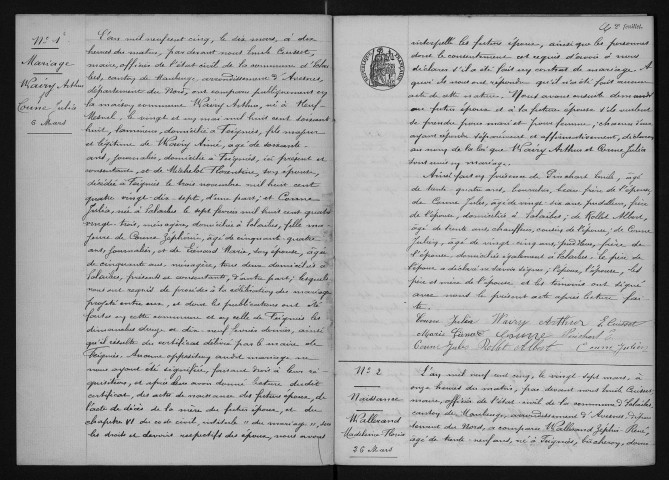 N° 1
Mariage
Wairy Arthur
et
Corme Julia
6 Mars
L'an mil neuf cent cinq, le six mars, à dix
heures du matin, par devant nous
maire, officier de l'état civil de la commune d'
canton de Maubeuge, arrondissement d'Avesnes,
département du Nord, ont comparu publiquement en
la maison commune Wairy Arthur, né à Neuf-
Mesnil, le vingt et un mai mil huit cent soixante
huit, lamineur, domicilié à Feignies, fils majeur
et légitime de Wairy Aimé, âgé de soixante
ans, journalier, domicilié à Feignies, ici présent et
consentant, et de Michelot Florentine, son épouse,
décédée à Feignies le trois novembre mil huit cent
quatre vingt-dix sept, d'une part; et Corme
Julia, née à le sept février mil huit cent quatre
vingt-trois, ménagère, domiciliée à fille ma-
jeure de Corme Zéphirin, âgé de cinquante quatre
ans, journalier, et de Liénard Marie, son épouse, âgée
de cinquante ans, ménagère, tous deux domiciliés à
présents et consentants, d'autre part; lesquels
nous ont requis de procéder à la célébration du mariage
projeté entre eux, et dont les publications ont été
faites en cette commune et en celle de Feignies les
dimanches douze et dix neuf février dernier, ainsi
qu'il résulte du certificat délivré par le maire de
Feignies. Aucune opposition audit mariage ne
nous ayant été signifiée, faisant droit à leur ré-
quisition, et après avoir donné lecture dudit
certificat, des actes de naissance des futurs époux, de
l'acte de décès de la mère du futur époux, et du
chapitre VI du code civil, intitulé " du mariage ", sur
les droits et devoirs respectifs des époux, nous avons
2e feuillet.
interpellé les futurs époux, ainsi que les personnes
dont le consentement est requis d'avoir à nous
déclarer s'il a été fait un contrat de mariage. A
quoi ils nous ont répondu qu'il n'a été fait aucun
acte de cette nature. Nous avons ensuite demandé
au futur époux et à la future épouse s'ils veulent
se prendre pour mari et pour femme; chacun d'eux
ayant répondu séparément et affirmativement, déclarons
au nom de la loi que Wairy Arthur et Corme Julia
sont unis en mariage.
Ainsi fait en présence de âgé
de trente quatre ans, beau frère de l'épouse,
de Corme Jules, âgé de vingt-six ans, frère
de l'épouse, domiciliés à de Rollot Albert,
âgé de trente ans, chauffeur, cousin de l'épouse; de Corme
âgé de vingt cinq ans, frère de
l'épouse domicilié également à le frère de
l'épouse a déclaré ne savoir signer; l'époux, l'épouse, les
père et mère de l'épouse et les témoins ont signé
avec nous le présent acte après lecture fai-
te.
Corme Julia Wairy Arthur
Marie Liénard Corme
Corme Jules Rollot Albert Corme
N° 2
Naissance
Wallerand
Madeleine
26 Mars
L'an mil neuf cent cinq, le vingt sept mars, à
onze heures du matin, par devant nous
maire, officier de l'état civil de la commune d'
canton de Maubeuge, arrondissement d'Avesnes, dépar-
tement du Nord, a comparu Wallerand Zéphir René,
âgé de trente neuf ans, né à Feignies,